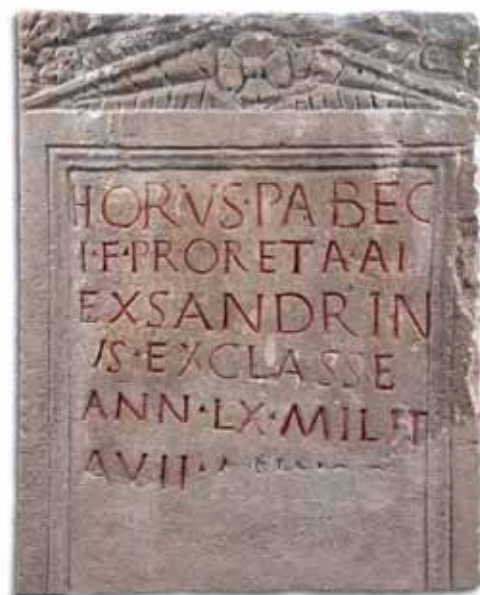 HORVS·PABEC
I·F·PRORETA·AL
EXSANDRIN
VS·EXCLASSE
ANN·LX·MILIT
AVII·